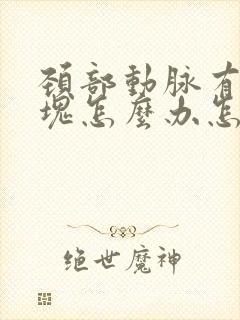 颈部動脉有
塊怎麼办怎
绝世魔神